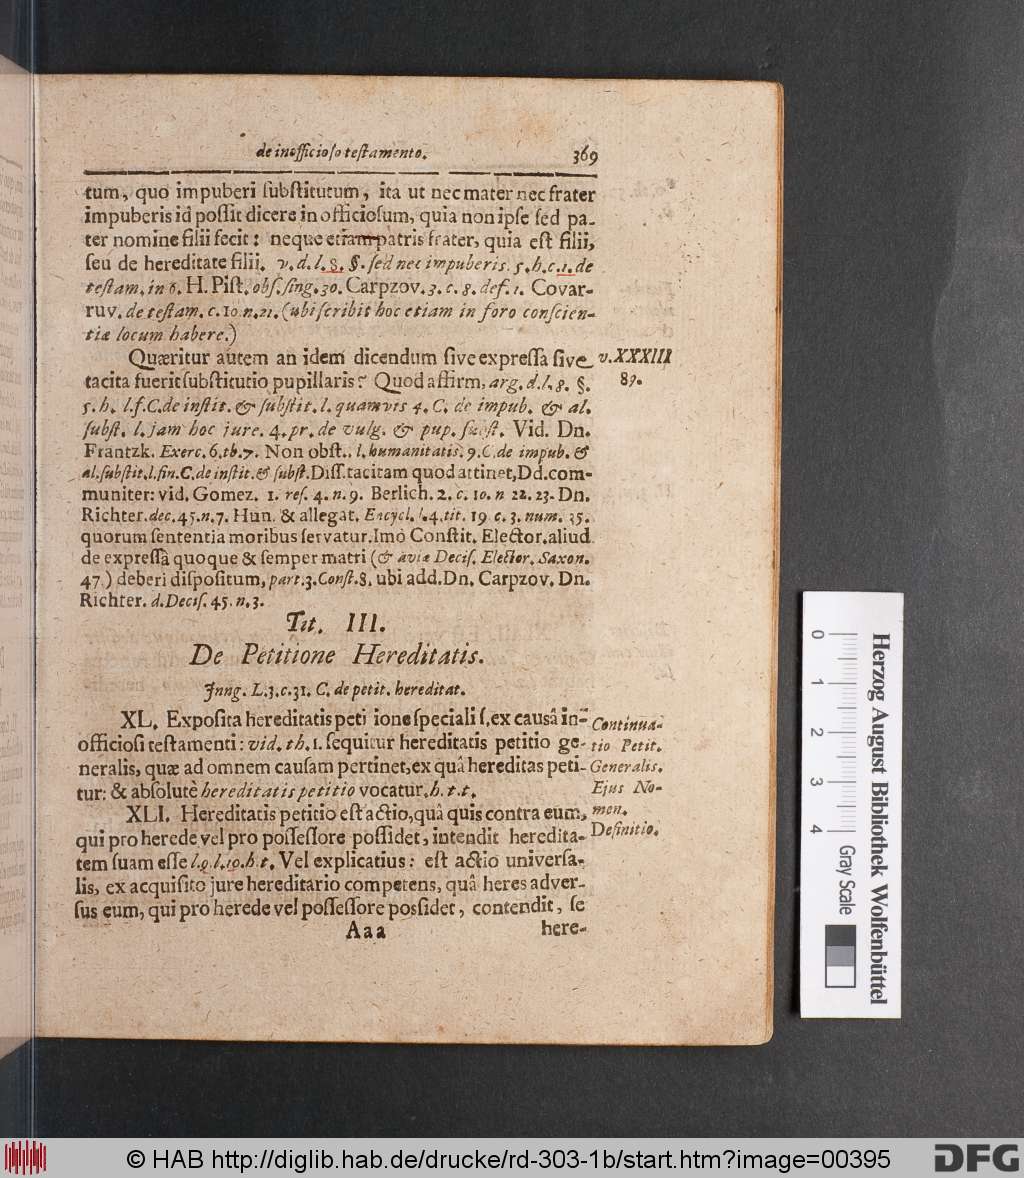 de inofficioso testamento. 369
tum, quo impuberi substitutum, ita ut nec mater nec frater
impuberis id possit dicere in officiosum, quia non ipse sed pa-
ter nomine filii fecit: neque etiam patris frater, quia est filii,
seu de hereditate filii. v. d. l. 8. §. sed nec impuberis. 5. h. c. 1. de
testam. in 6. H. Pist. obs. sing. 30. Carpzov. 3. c. 8. def. 1. Covar-
ruv. de testam. c. 10 n. 21. (ubi scribit hoc etiam in foro conscien-
tiæ locum habere.)
Quæritur autem an idem dicendum sive expressa sive
v. XXXIII
tacita fuerit substitutio pupillaris? Quod affirm, arg. d. l. 8. §.
89.
5. h. l. f. C. de instit. & substit. l. quamvis 4. C. de impub. & al.
subst. l. jam hoc jure. 4. pr. de vulg. & pup. subst. Vid. Dn.
Frantzk. Exerc. 6. th. 7. Non obst., l. humanitatis. 9. C. de impub. &
al. substit. l. fin. C. de instit. & subst. Diss. tacitam quod attinet, Dd. com-
muniter: vid. Gomez. 1. res. 4. n. 9. Berlich. 2. c. 10. n 22. 23. Dn.
Richter. dec. 45. n. 7. Hun. & allegat. Encycl. l. 4. tit. 19 c. 3. num. 35.
quorum sententia moribus servatur. Imò Constit. Elector. aliud
de expressâ quoque & semper matri (& aviæ Decis. Elector. Saxon.
47.) deberi dispositum, part. 3. Const. 8. ubi add. Dn. Carpzov. Dn.
Richter. d. Decis. 45. n. 3.
Tit. III.
De Petitione Hereditatis.
Jnng. L. 3. c. 31. C. de petit. hereditat.
XL. Exposita hereditatis peti ione speciali s, ex causâ in-
officiosi testamenti: vid. th. 1. sequitur hereditatis petitio ge-
neralis, quæ ad omnem causam pertinet, ex quâ hereditas peti-
tur: & absolutè hereditatis petitio vocatur. h. t. t.
Continua-
tio Petit.
Generalis.
Ejus No-
men.
XLI. Hereditatis petitio est actio, quâ quis contra eum,
qui pro herede vel pro possessore possidet, intendit heredita-
Definitio.
tem suam esse l. 9. l. 10. h. t. Vel explicatius: est actio universa-
lis, ex acquisito jure hereditario competens, quâ heres adver-
sus eum, qui pro herede vel possessore possidet, contendit, se
Aaa here-
Herzog August Bibliothek Wolfenbüttel
0 1 2 3 4
Gray Scale
© HAB http://diglib.hab.de/drucke/rd-303-1b/start.htm?image=00395
DFG